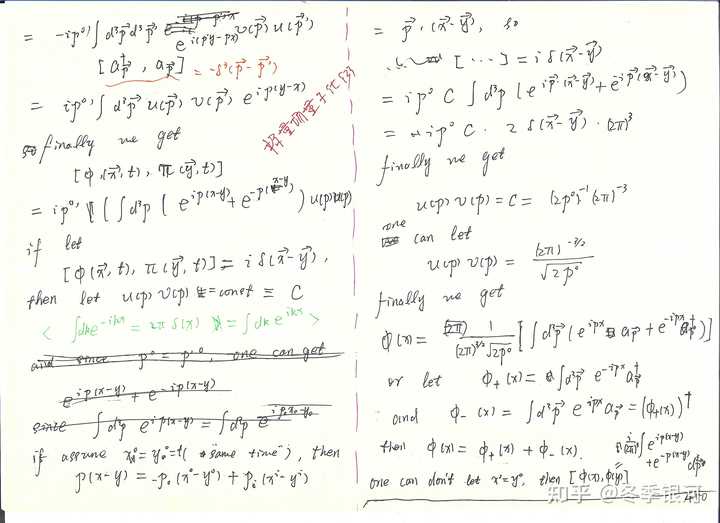 = -ip⁰' ∫ d³p⃗ d³p⃗' e^{i(p'y-px)} v(p⃗) u(p⃗')
[a†_p⃗ , a_p⃗'] = -δ³(p⃗-p⃗')
= ip⁰' ∫ d³p⃗ u(p⃗) v(p⃗) e^{ip(y-x)}
finally we get
[ϕ(x⃗,t), π(y⃗,t)]
= ip⁰' ( ∫ d³p ( e^{ip(x-y)} + e^{-ip(x-y)} ) u(p)v(p)
if let
[ϕ(x⃗,t), π(y⃗,t)] = iδ(x⃗-y⃗),
then let u(p) v(p) = const ≡ C
< ∫dk e^{-ikx} = 2π δ(x) = ∫dk e^{ikx} >
and since p⁰ = p'⁰, one can get
e^{ip(x-y)} + e^{-ip(x-y)}
since ∫d³p e^{ip(x-y)} = ∫d³p
if assume x⁰=y⁰=t ("same time"), then
p(x-y) = -p₀(x⁰-y⁰) + p_i(x^i-y^i)
标量场量子化
= p⃗·(x⃗-y⃗), so
[···] = iδ(x⃗-y⃗)
= ip⁰ C ∫d³p (e^{ip⃗·(x⃗-y⃗)} + e^{-ip⃗(x⃗-y⃗)})
= ip⁰ C · 2 δ(x⃗-y⃗) · (2π)³
finally we get
u(p) v(p) = C = (2p⁰)⁻¹ (2π)⁻³
one can let
u(p) v(p) = (2π)^{-3/2} / √2p⁰
finally we get
ϕ(x) = 1/((2π)^{3/2}√2p⁰) [∫d³p⃗ (e^{ipx} a_p⃗ + e^{-ipx} a†_p⃗)]
or let ϕ₊(x) = ∫d³p⃗ e^{-ipx} a†_p⃗
and ϕ₋(x) = ∫d³p⃗ e^{ipx} a_p⃗ = (ϕ₊(x))†
then ϕ(x) = ϕ₊(x) + ϕ₋(x).
one can don't let x⁰=y⁰, then [ϕ(x), ϕ(y)]
知乎 @冬季银河